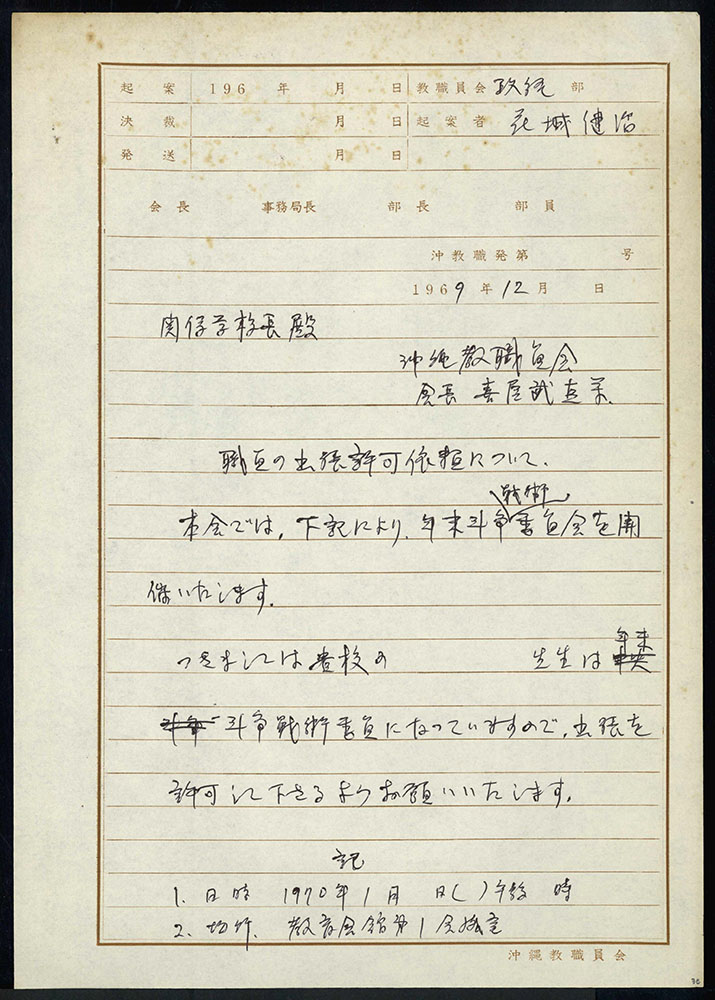 起案 196 年 月 日 教職員会 政経 部
決裁 月 日 起案者 花城健治
発送 月 日
会長 事務局長 部長 部員
沖教職発第 号
1969年12月 日
関係学校長殿
沖縄教職員会
会長 喜屋武真栄
職員の出張許可依頼について、
戦術
本会では、下記により、年末斗争委員会を開
催いたします。
年末
つきましては貴校の 先生は
斗争戦術委員になっていますので、出張を
許可して下さるようお願いいたします。
記
1. 日時 1970年1月 日( )午後 時
2. 場所、教育会館第1会議室
沖縄教職員会